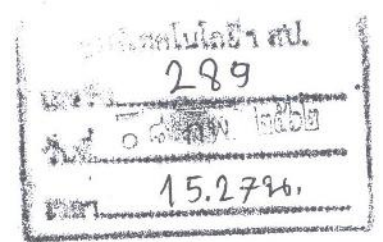 เทคโนโลยีฯ สป.
289
วันที่ ๐๘ กพ ๒๕๖๒
เวลา 15.27 น.